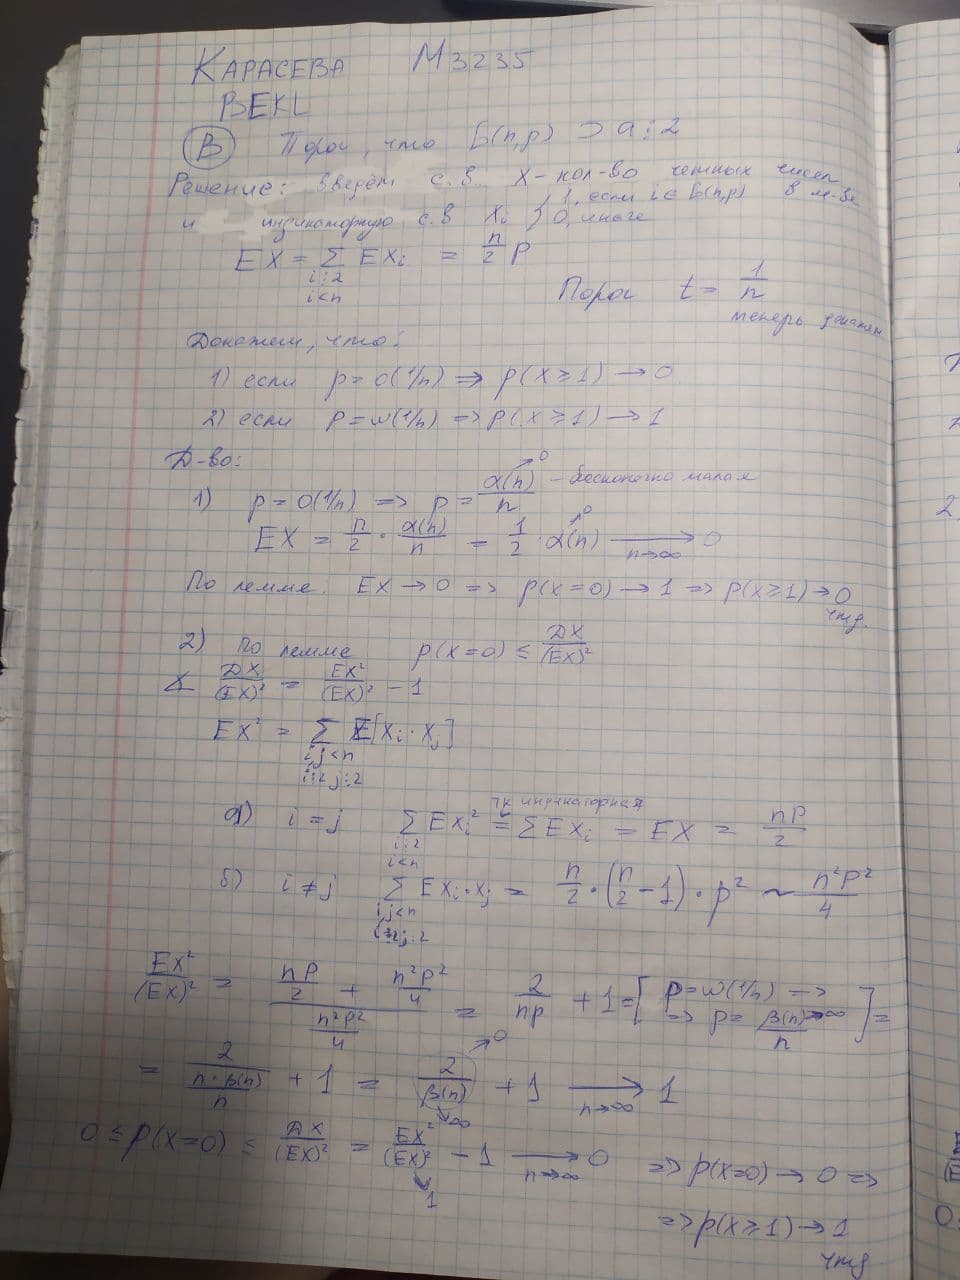 КАРАСЕВА М3235
ВЕКL
(В) Порог, что Б(n,p) ∋ a⋮2
Решение: введём с.в. X - кол-во четных чисел в м-ве
и индикаторную с.в Xi { 1, если i ∈ Б(n,p)
0, иначе
EX = Σ EXi = n/2 p
i⋮2
i<n
Порог t = 1/n
теперь докажем
Докажем, что:
1) если p = o(1/n) => p(X≥1) → 0
2) если p = ω(1/n) => p(X≥1) → 1
Д-во:
1) p = o(1/n) => p = α(n)/n → 0 - бесконечно малая
EX = n/2 · α(n)/n = 1/2 α(n) → 0
n→∞
По лемме: EX → 0 => p(x=0) → 1 => p(x≥1) → 0
чтд.
2) По лемме p(x=0) ≤ DX/(EX)²
∢ DX/(EX)² = EX²/(EX)² - 1
EX² = Σ E[Xi · Xj]
i,j<n
i⋮2 j⋮2
а) i = j Σ EXi² = (тк индикаторная) Σ EXi = EX = np/2
i⋮2
i<n
б) i ≠ j Σ EXi·Xj = n/2 · (n/2 - 1) · p² ~ n²p²/4
i,j<n
i⋮2 j⋮2
EX²/(EX)² = (np/2 + n²p²/4)/(n²p²/4) = 2/np + 1 = [p = ω(1/n) => => p = β(n)/n → ∞] =
= 2/(n·β(n)/n) + 1 = 2/β(n) + 1 → 1
n→∞
0 ≤ p(x=0) ≤ DX/(EX)² = EX²/(EX)² - 1 → 0 => p(x=0) → 0 =>
n→∞
=> p(x≥1) → 1
чтд